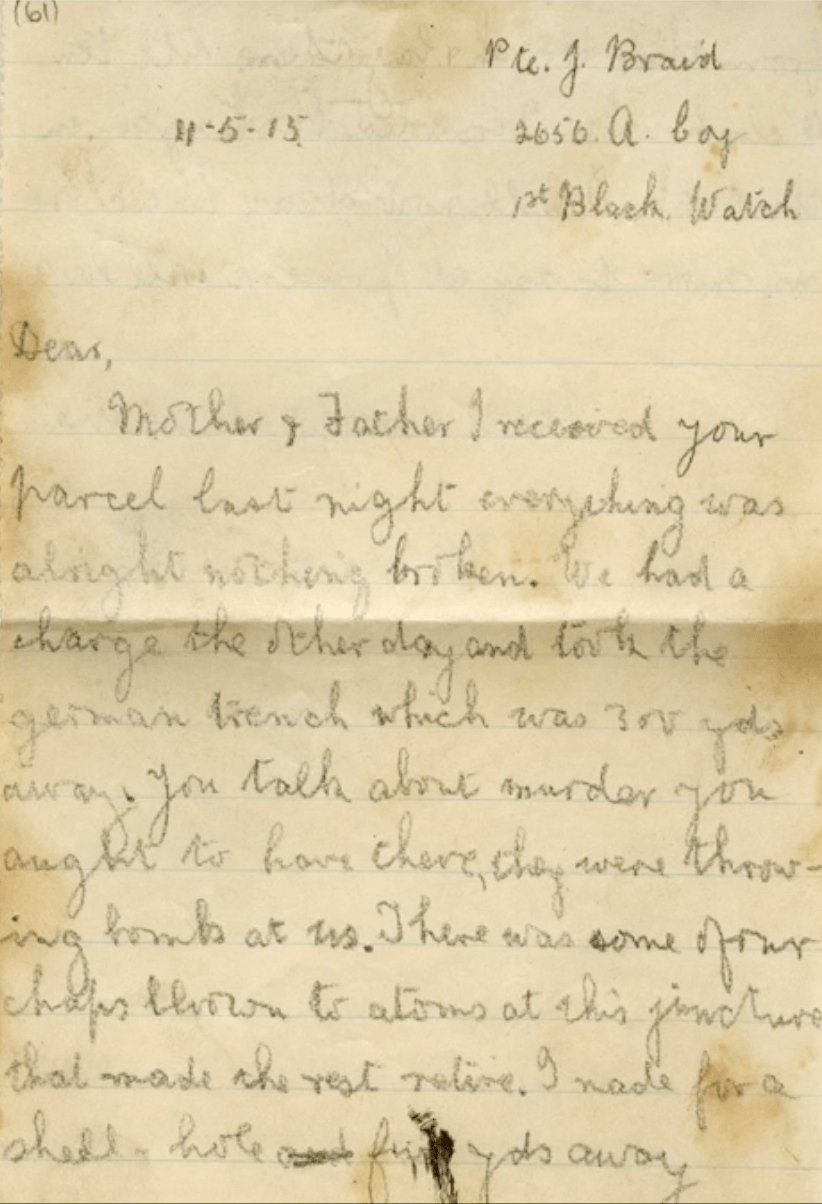 (61)
Pte. J. Braid
11-5-15
2656. A. Coy
1st Black. Watch
Dear,
Mother & Father I received your
parcel last night everything was
alright nothing broken. We had a
charge the other day and took the
german trench which was 300 yds
away. You talk about murder you
aught to have there, they were throw-
ing bombs at us. There was some of our
chaps blown to atoms at this juncture
that made the rest retire. I made for a
shell-hole yds away